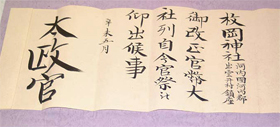 枚岡神社
河内国河内郡
出雲井村鎮座
御改正官幣大
社列自今官祭被
仰出候事
辛未五月
太政官